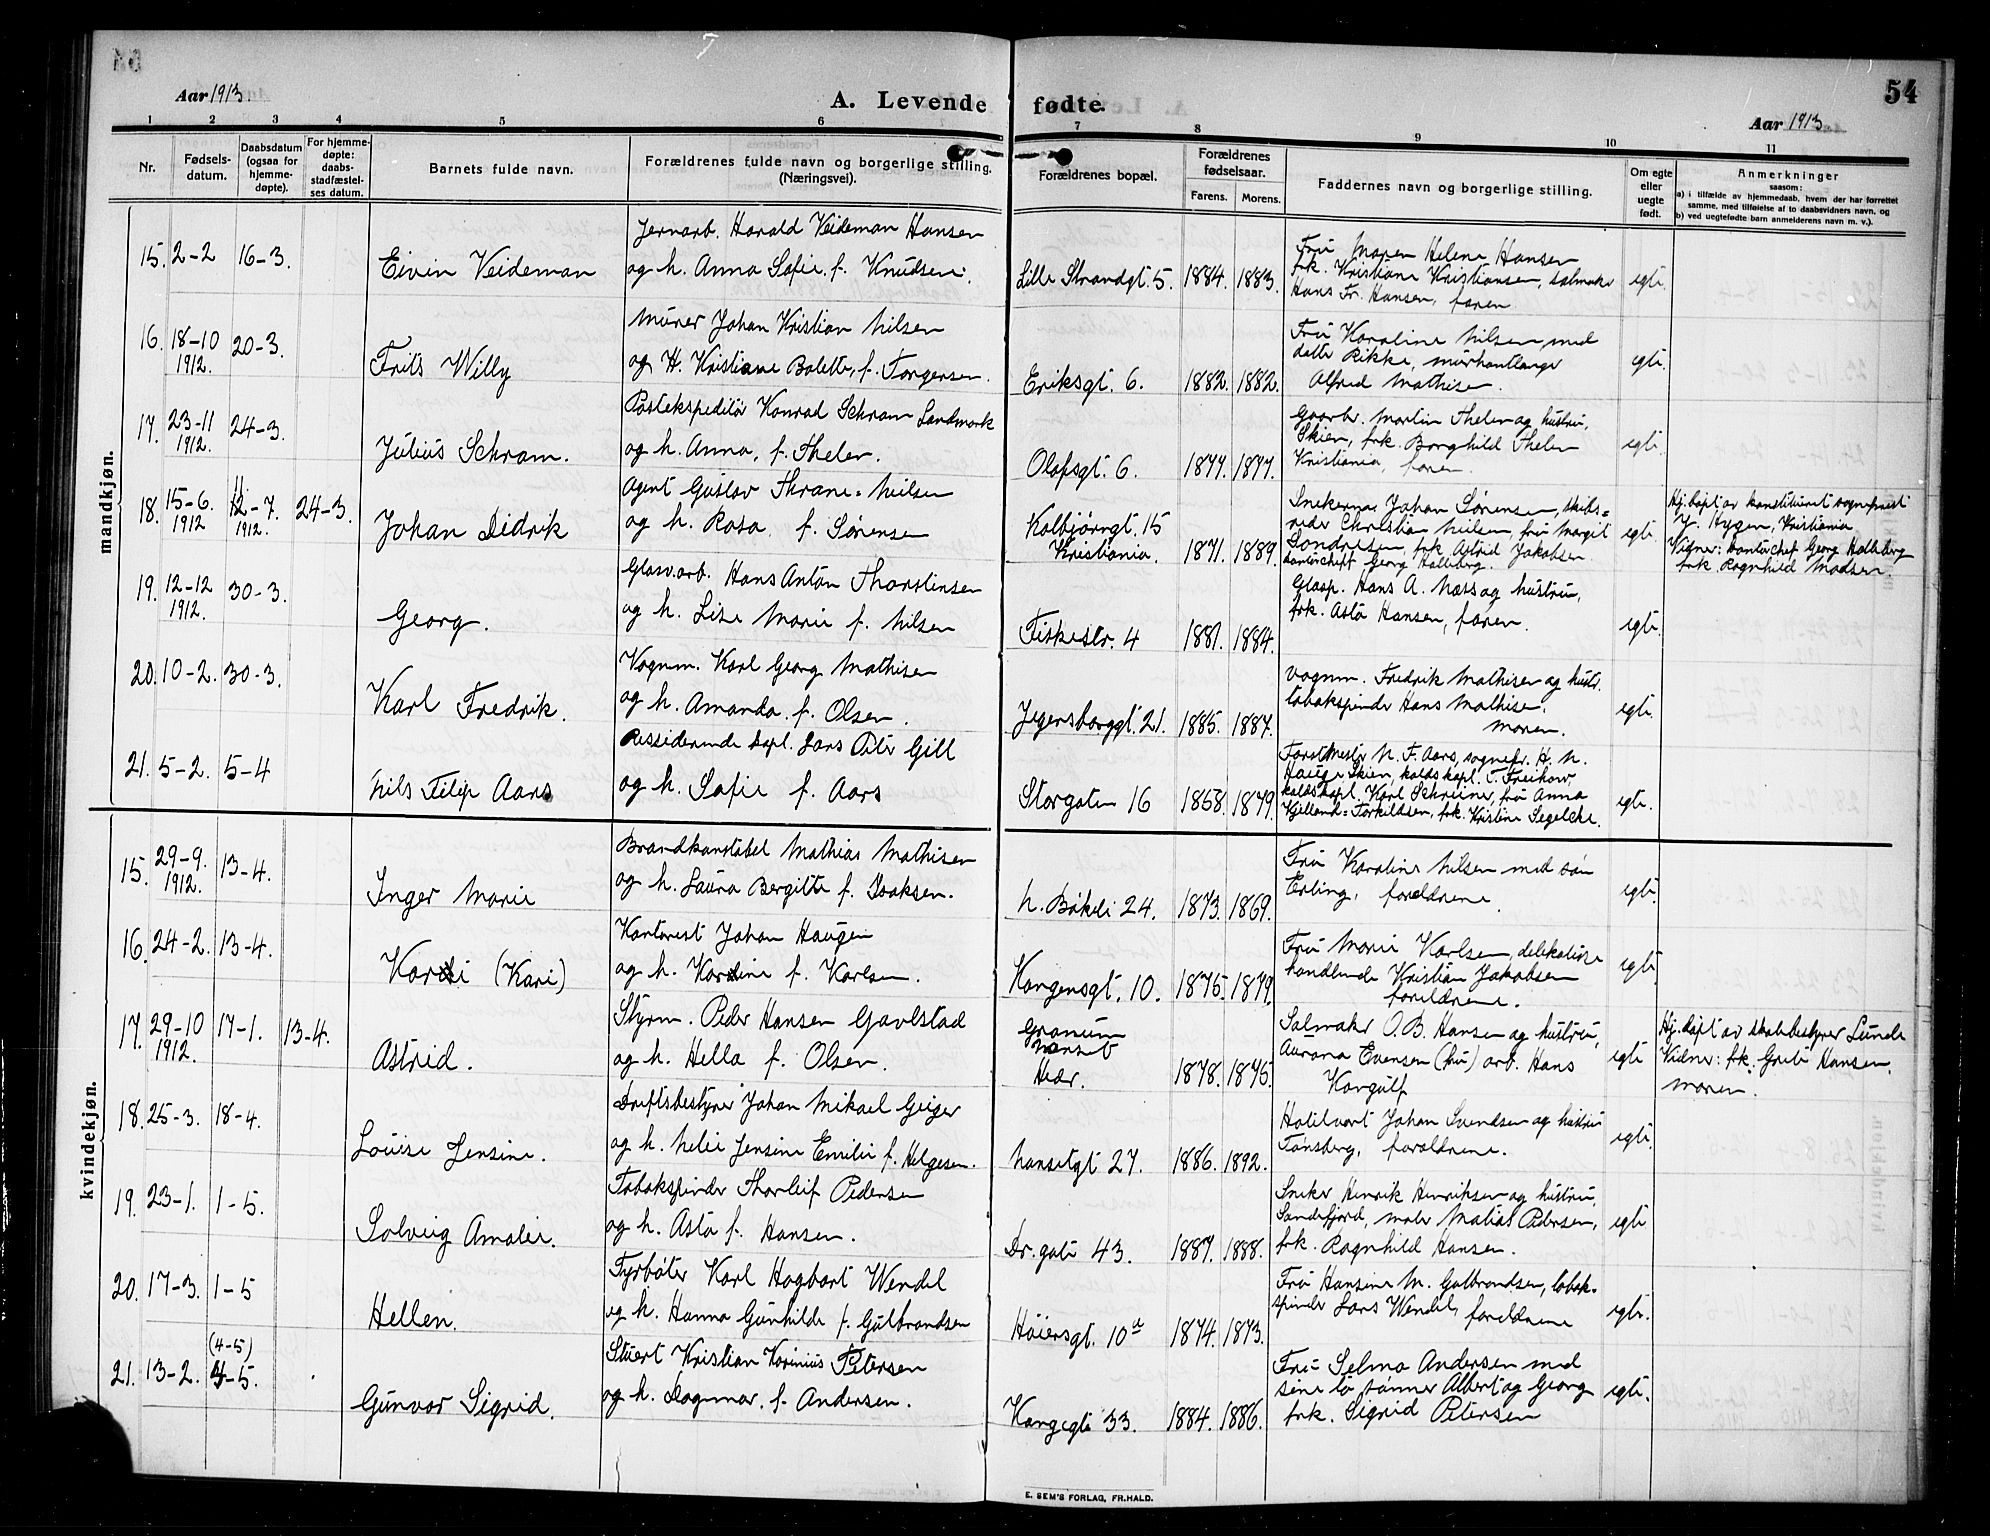 54
Aar 1913.
A. Levende fødte.
Aar 1913
1 2 3 4 5 6 7 8 9 10 11
Nr.
Fødsels-
datum.
Daabsdatum
(ogsaa for
hjemme-
døpte).
For hjemme-
døpte:
daabs-
stadfæstel-
ses datum.
Barnets fulde navn.
Forældrenes fulde navn og borgerlige stilling.
(Næringsvei).
Forældrenes bopæl.
Forældrenes
fødselsaar.
Farens. Morens.
Faddernes navn og borgerlige stilling.
Om egte
eller
uegte
født.
Anmerkninger
saasom:
a) i tilfælde av hjemmedaab, hvem der har forrettet
samme, med tilføielse af to daabsvidners navn, og
b) ved uegtefødte barn anmelderens navn m. v.).
mandkjøn.
15. 2-2 16-3.
Eivin Veideman
Jernarb. Harald Veideman Hansen
og h. Anna Sofie, f. Knudsen.
Lille Strandgt. 5. 1884. 1883.
Fru Maren Helene Hansen
frk. Kristiane Kristiansen, salmaker
Hans Fr. Hansen, faren
egte.
16. 18-10
1912. 20-3.
Frits Willy
Murer Johan Kristian Nilsen
og H. Kristiane Bolette, f. Torgersen.
Eriksgt. 6. 1882. 1882.
Fru Karoline Nilsen med
datter Rikke, murhantlanger
Alfred Mathisen.
egte.
17. 23-11
1912. 24-3.
Julius Schram.
Postekspeditør Konrad Schram Landmark
og h. Anna, f. Thelen.
Olafsgt. 6. 1877. 1877.
Gaarbr. Martin Thelen og hustru,
Skien, frk. Borghild Thelen
Kristiania, faren.
egte
18. 15-6.
1912 12-7.
1912. 24-3.
Johan Didrik
Agent Gustav Thrane-Nielsen
og h. Rosa f. Sørensen
Kolbjørngt. 15
Kristiania. 1871. 1889.
Snekerm. Johan Sørensen, skibs-
reder Christian Nielsen, fru Margit
Gondresen, frk. Astrid Jakobsen
kontorchef Georg Halleberg.
egte.
Hj.døpt av konstitueret sogneprest
J. Hygen, Kristiania
Vidner: kontorchef Georg Halleberg
frk. Ragnhild Madsen.
19. 12-12
1912. 30-3.
Georg.
Glasv.arb. Hans Anton Thorstinsen
og h. Lise Marie f. Nilsen
Fiskestr. 4 1881. 1884.
Glasp. Hans A. Næss og hustru,
frk. Asta Hansen, faren.
egte.
20. 10-2. 30-3.
Karl Fredrik.
Vognm. Karl Georg Mathisen
og h. Amanda. f. Olsen.
Jegersborggt. 21. 1885. 1887.
Vognm. Fredrik Mathisen og hustr.
tobakspinder Hans Mathisen.
moren.
egte.
21. 5-2. 5-4
Nils Filip Aars
Residerende kapl. Lars Peter Gill
og h. Sofie f. Aars
Storgaten 16 1868. 1879.
Forstmester N. F. Aars, sognepr. H. N.
Hauge Skien, kaldskapl. T. Freihow
kaldskapl. Karl Schreiner, fru Anna
Kjelland-Torkildsen, frk. Kristine Segelcke.
egte.
kvindekjøn.
15. 29-9.
1912. 13-4.
Inger Marie
Brandkonstabel Mathias Mathisen
og h. Laura Bergitte f. Isaksen.
N. Bøkeli 24. 1873. 1869.
Fru Karoline Nilsen med søn
Erling, forældrene.
egte.
16. 24-2. 13-4.
Kardi (Kari)
Kontorist Johan Haugen
og h. Kardine f. Karlsen.
Kongensgt. 10. 1875. 1879.
Fru Marie Karlsen, delikatesse
handlende Kristian Jakobsen
forældrene.
egte.
17. 29-10
1912. 17-1. 13-4.
Astrid.
Styrm. Peder Hansen Gavlstad
og h. Hella f. Olsen.
Granum
Hedr. 1878. 1875.
Salmaker O. B. Hansen og hustru,
Aurora Evensen (fru) arb. Hans
Kongulf
egte
Hj.døpt av skolebestyrer Lunde
Vidner: frk. Grete Hansen,
moren.
18. 25-3. 18-4.
Louise Jensine.
Driftsbestyrer Johan Mikael Geiger
og h. Nelie Jensine Emilie f. Helgesen.
Nansetgt 27. 1886. 1892.
Hotelvært Johan Svendsen og hustru
Tønsberg, forældrene.
egte.
19. 23-1. 1-5.
Solveig Amalie.
Tobakspinder Thorleif Pedersen
og h. Asta f. Hansen.
Dr.gate 43. 1887. 1888.
Sneker Henrik Henriksen og hustru,
Sandefjord, maler Matias Pedersen,
frk. Ragnhild Hansen.
egte
20. 17-3. 1-5
Hellen.
Fyrbøter Karl Hagbart Wendel
og h. Hanna Gunhilde f. Gulbrandsen
Høiersgt. 10a 1874. 1873.
Fru Hansine M. Gulbrandsen, tobak-
spinder Lars Wendel, forældrene
egte.
21. 13-2. (4-5)
4-5.
Gunvor Sigrid.
Stuert Kristian Karinius Petersen
og h. Dagmar, f. Andersen.
Kongegt. 33. 1884. 1886.
Fru Selma Andersen med
sine to sønner Albert og Georg
frk. Sigrid Petersen
egte.
E. SEM'S FORLAG, FR.HALD.